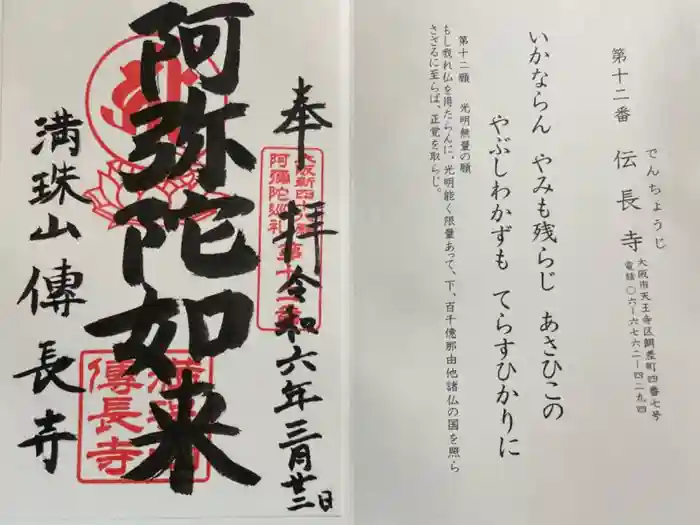 奉拝 令和六年三月廿二日
大阪新四十八願
阿彌陀巡礼 第十二番
阿弥陀如来
満珠山 傳長寺
傳長寺
第十二番 伝長寺
でんちょうじ
大阪市天王寺区餌差町四番七号
電話〇六―六七六二―四二九四
いかならん やみも残らじ あさひこの
やぶしわかずも てらすひかりに
第十二願 光明無量の願
もし我れ仏を得たらんに、光明能く限量あって、下、百千億那由他諸仏の国を照ら
さざるに至らば、正覚を取らじ。